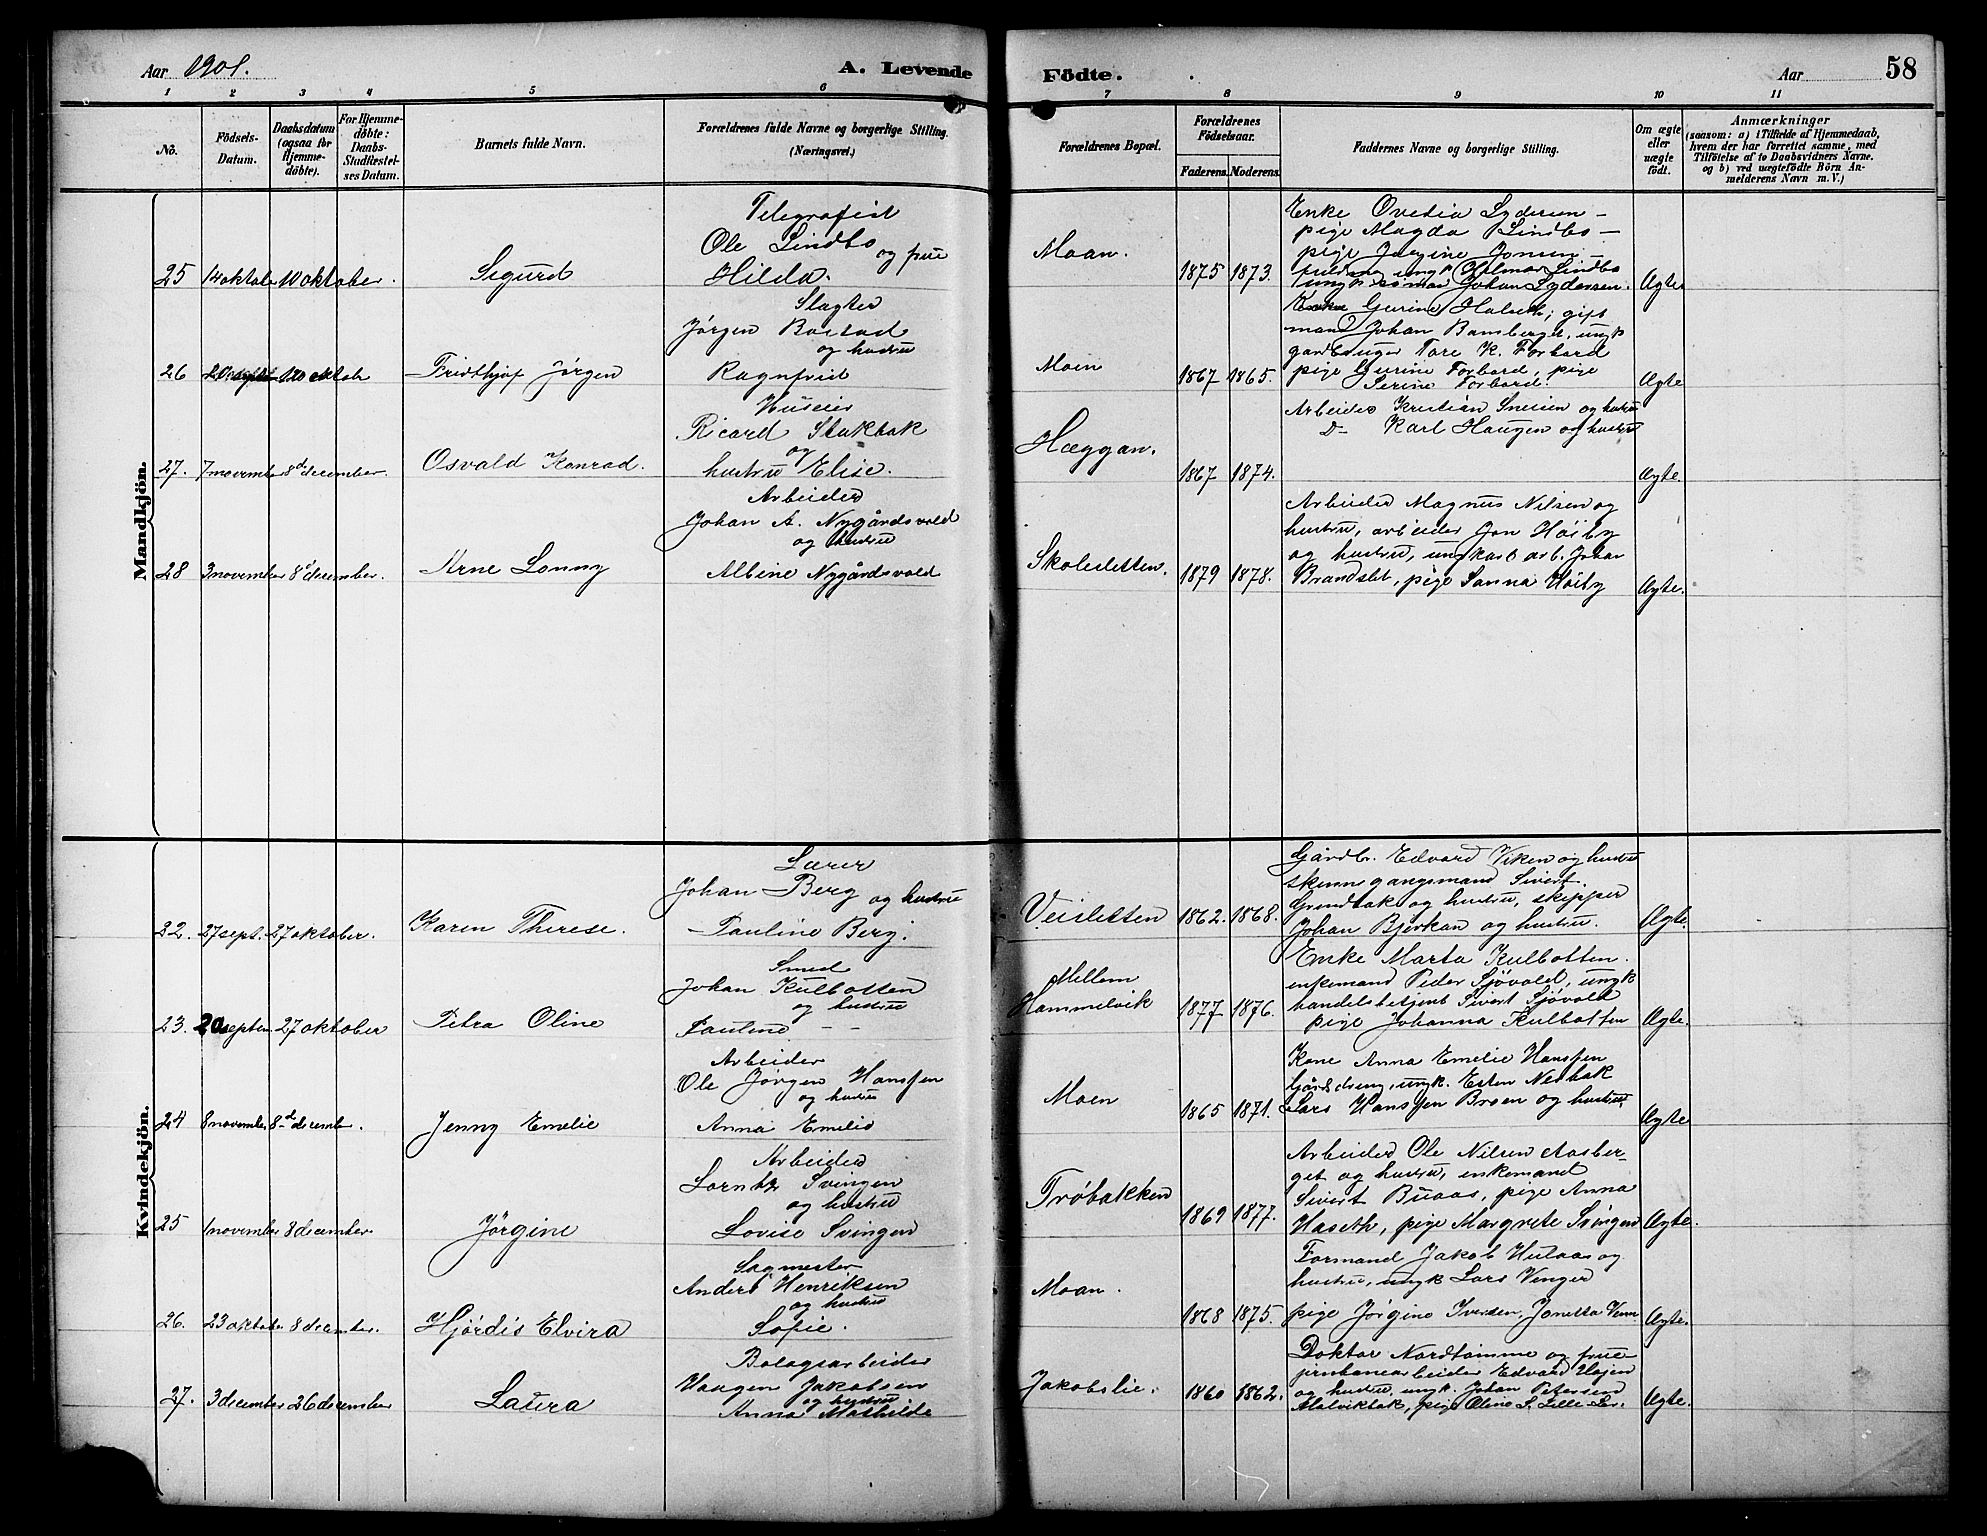 Aar 1901.
A. Levende
Födte.
Aar
58
1 2 3 4 5 6 7 8 9 10 11
No.
Födsels-Datum.
Daabsdatum (ogsaa for Hjemmedöbte).
For Hjemmedöbte: Daabs-Stadfæstelses Datum.
Barnets fulde Navn.
Forældrenes fulde Navne og borgerlige Stilling.
(Næringsvei.)
Forældrenes Bopæl.
Forældrenes Födselsaar.
Faderens. Moderens.
Faddernes Navne og borgerlige Stilling.
Om ægte eller uægte födt.
Anmærkninger
(saasom: a) i Tilfælde af Hjemmedaab,
hvem der har forrettet samme, med
Tilföielse af to Daabsvidners Navne.
og b) ved uægtefödte Börn An-
melderens Navn m. V.)
Mandkjön.
25 14 oktober 10 oktober. Sigurd
Telegrafist
Ole Lindbo og frue
Hilda.
Moan. 1875 1873.
Enke Ovedia Lydersen –
pige Magda Lindbo –
pige Jørgine Jonsen –
Hilmar Lindbo
Johan Lydersen.
Ægte
26 20 sept. 20 oktob Fridthjof Jørgen
Slagter
Jørgen Bostad
og hustru
Ragnfrid
Moen 1867 1865.
Gurine Halseth, gift
mand Johan Bamberget, ungk
gardbruger Tore K. Forbord
pige Gurine Forbord, pige
Serine Forbord.
Ægte
27. 7 november 8d december. Osvald Konrad.
Huseier
Ricard Stokbak
og
hustru Elise.
Hæggan. 1867 1874.
Arbeider Kristian Snesen og hustru
D– Karl Haugen og hustru
Ægte.
28 3 november 8d december. Arne Lonny
Arbeider
Johan A. Nygårdsvold
og hustru
Albine Nygårdsvold
Skolesletten. 1879 1878.
Arbeider Magnus Nilsen og
hustru, arbeider Jon Høiby
og hustru, ungkar arb. Johan
Brandslet, pige Sanna Høiby
Ægte.
Kvindekjön.
22. 27 sept. 27 oktober. Karen Therese.
Lærer
Johan Berg og hustru
Pauline Berg.
Veisletten 1862. 1868.
Gårdbr. Edvard Viken og hustru
skinnegangsmand Sivert
Grundbak og hustru, skipper
Johan Bjerkan og hustru.
Ægte.
23. 20 septem 27 oktober Petra Oline
Smed
Johan Kulbotten
og hustru
Pauline – –
Mellem
Hommelvik 1877 1876.
Enke Marta Kulbotten.
enkemand Peder Sjøvold, ungk
handelsbetjent Sivert Sjøvold
pige Johanna Kulbotten
Ægte.
24 8 novembe 8d decemb. Jenny Emelie
Arbeider
Ole Jørgen Hanssen
og hustru
Anna Emelie
Moen 1865 1871.
Kone Anna Emelie Hanssen
Gårdsdreng, ungk. Esten Nesbak
Lars Hanssen Broen og hustru,
Ægte
25 1 november 8 december. Jørgine
Arbeider
Lorntz Svingen
og hustru
Lovise Svingen
Trøbakken 1869 1877.
Arbeider Ole Nilsen Aasber-
get og hustru, enkemand
Sivert Buaas, pige Anna
Haseth, pige Margrete Svingen
Ægte.
26. 23 oktober 8 december. Hjørdis Elvira
Sagmester
Anders Henriksen
og hustru
Sofie.
Moan. 1868 1875.
Formand Jakob Hulaas og
hustru, ungk Lars Venger
pige Jørgine Iversen, Jonetta
Ægte.
27. 3 december 26 december Laura
Bolagsarbeider
Haugen Jakobsen
og hustru
Anna Mathilde
Jakobslie. 1860 1862.
Doktor Nordtømme og frue
jernbanearbeider Edvard
og hustru, ungk. Johan Petersen
Malvikbak, pige Oline S. Lille
Ægte.